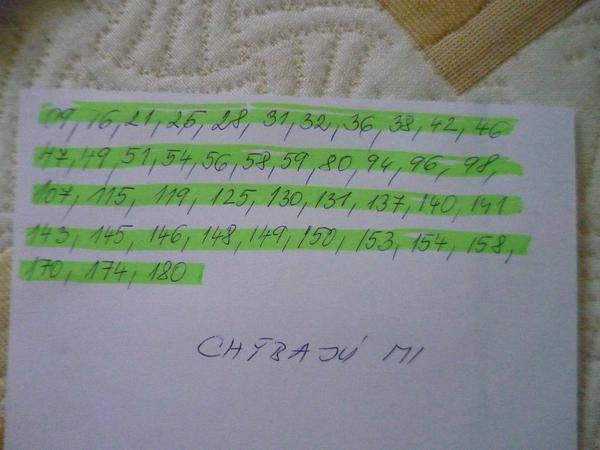 09, 16, 21, 25, 28, 31, 32, 36, 38, 42, 46
47, 49, 51, 54, 56, 58, 59, 80, 94, 96, 98,
107, 115, 119, 125, 130, 131, 137, 140, 141
143, 145, 146, 148, 149, 150, 153, 154, 158,
170, 174, 180
CHÝBAJÚ MI